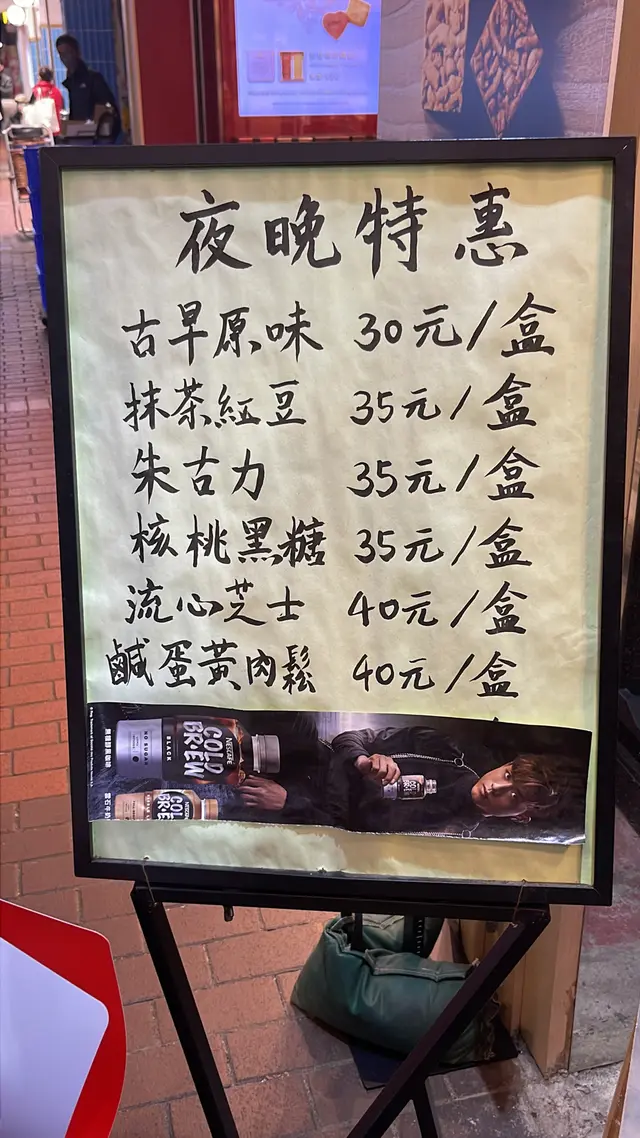 夜晚特惠
古早原味 30元/盒
抹茶紅豆 35元/盒
朱古力 35元/盒
核桃黑糖 35元/盒
流心芝士 40元/盒
鹹蛋黃肉鬆 40元/盒
NESCAFÉ
COLD BREW
BLACK
NO SUGAR
NESCAFÉ
COLD BREW